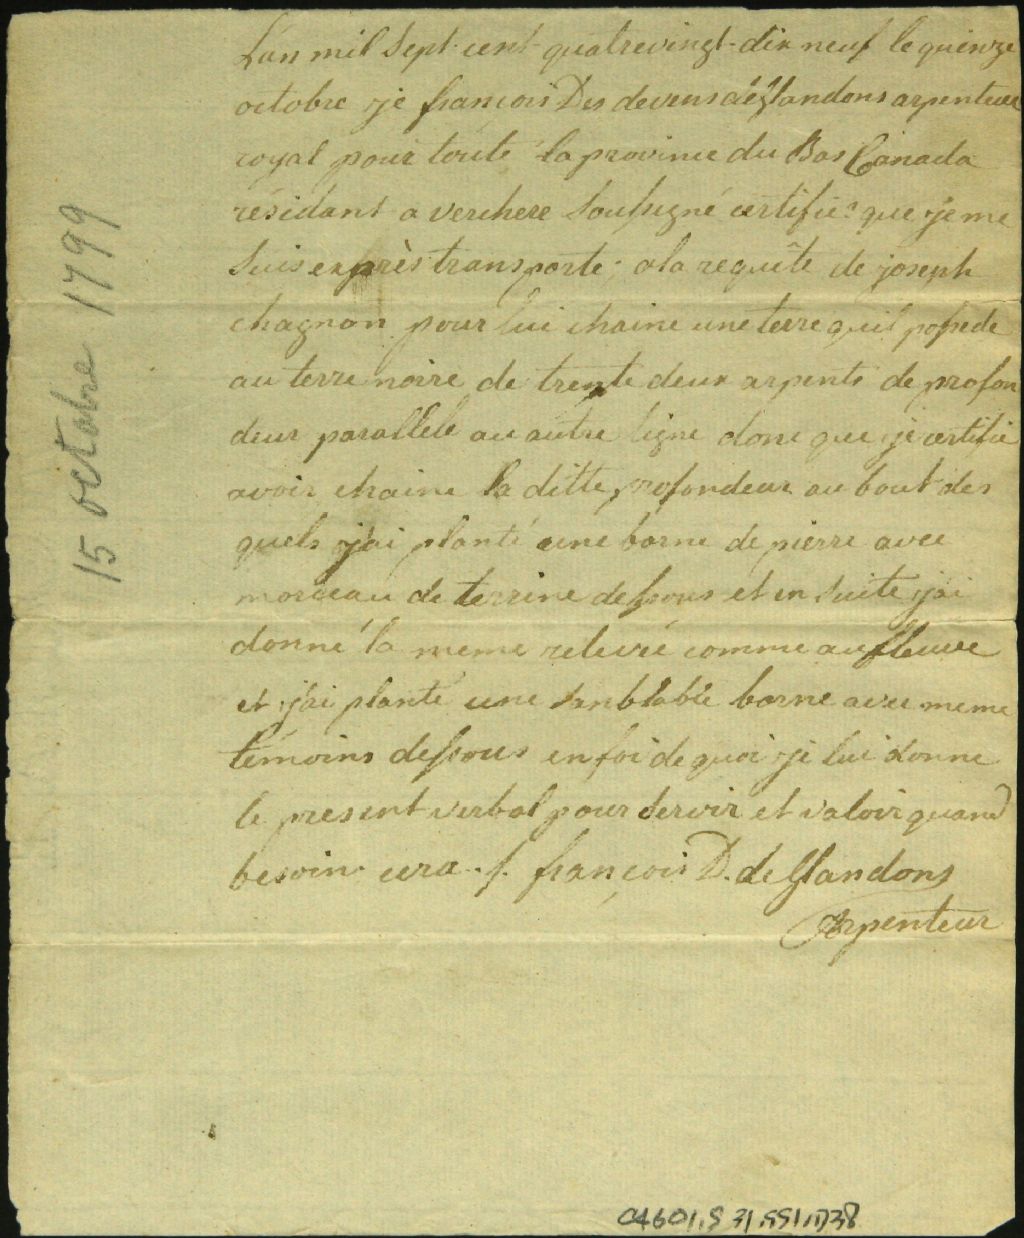 L'an mil sept cent quatrevingt-dix neuf le quinze
octobre je françois Des devens déglandons arpenteur
royal pour toute la province du Bas Canada
résidant a verchere soussigné certifie que je me
suis exprès transporte, a la requête de joseph
chagnon pour lui chaine une terre quil possede
au terre noire de trente deux arpents de profon
deur parallele au autre ligne donc que je certifie
avoir chaine la ditte profondeur au bout des
quels j'ai planté une borne de pierre avec
morceau de terrine dessous et en suite j'ai
donné la meme relevée comme au fleuve
et j'ai planté une sanblable borne avec meme
témoins dessous en foi de quoi je lui donne
le present verbal pour servir et valoir quand
besoin cera . /. françois D. deglandons
Arpenteur
15 octobre 1799